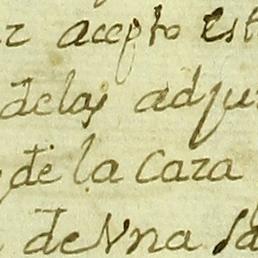 acepto est
delas adju
de la Caza
de Vna sa